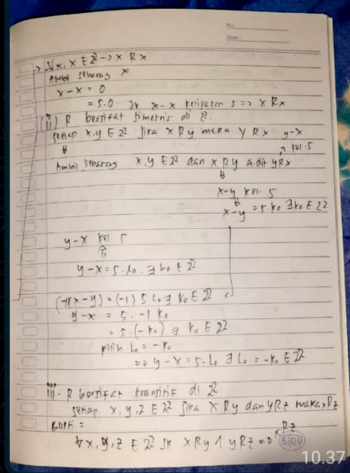 No.
Date:
> ∀x, x ∈ ℤ → x R x
Ambil sebarang x
x - x = 0
= 5.0 Jk x - x kelipatan 5 => x R x
(ii) R bersifat simetris di ℤ
setiap x, y ∈ ℤ Jika x R y maka y R x y-x
kel. 5
Ambil sebarang x, y ∈ ℤ dan x R y a.dit y R x
x-y kel. 5
x-y = 5 k₀ ∃ k₀ ∈ ℤ
y - x kel. 5
y - x = 5 . l₀ ∃ l₀ ∈ ℤ
(-1)(x-y) = (-1) 5 k₀ ∃ k₀ ∈ ℤ
y - x = 5 . -1 k₀
= 5 . (-k₀) ∃ k₀ ∈ ℤ
pilih l₀ = -k₀
=> y - x = 5.l₀ ∃ l₀ = -k₀ ∈ ℤ
iii. R bersifat transitif di ℤ
setiap x, y, z ∈ ℤ Jika x R y dan y R z maka x R z
Bukti =
∀ x, y, z ∈ ℤ Jk x R y ∧ y R z => x R z
SIDU
10.37